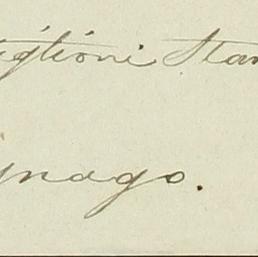 iglioni Stan
gnago.